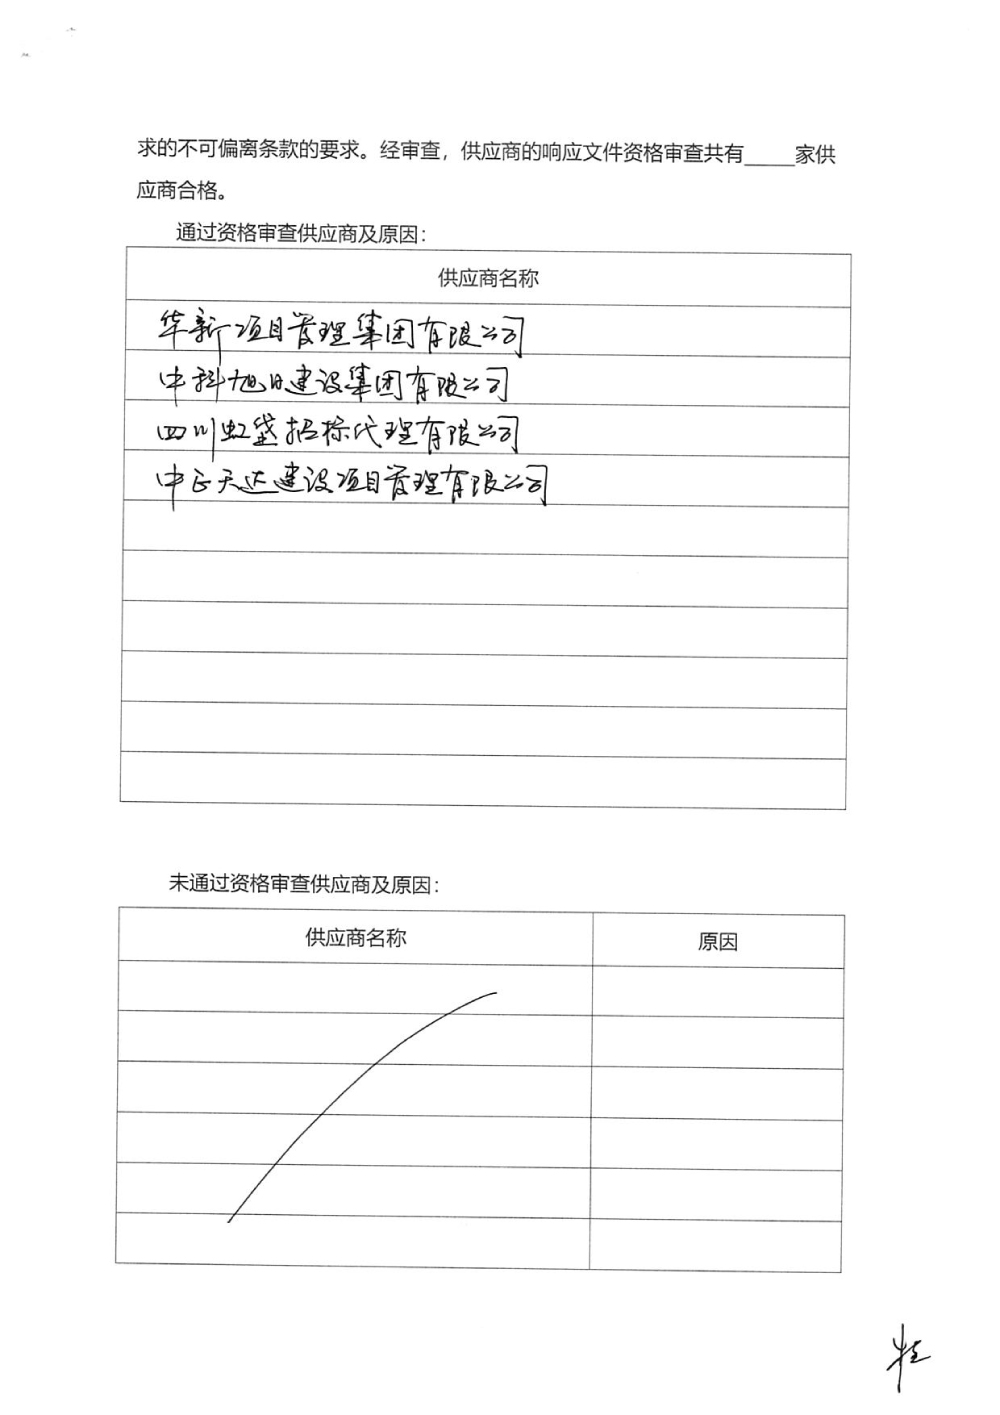 求的不可偏离条款的要求。经审查，供应商的响应文件资格审查共有_____家供
应商合格。
通过资格审查供应商及原因：
供应商名称
华新项目管理集团有限公司
中科旭日建设集团有限公司
四川虹垡招标代理有限公司
中正天达建设项目管理有限公司
未通过资格审查供应商及原因：
供应商名称 原因